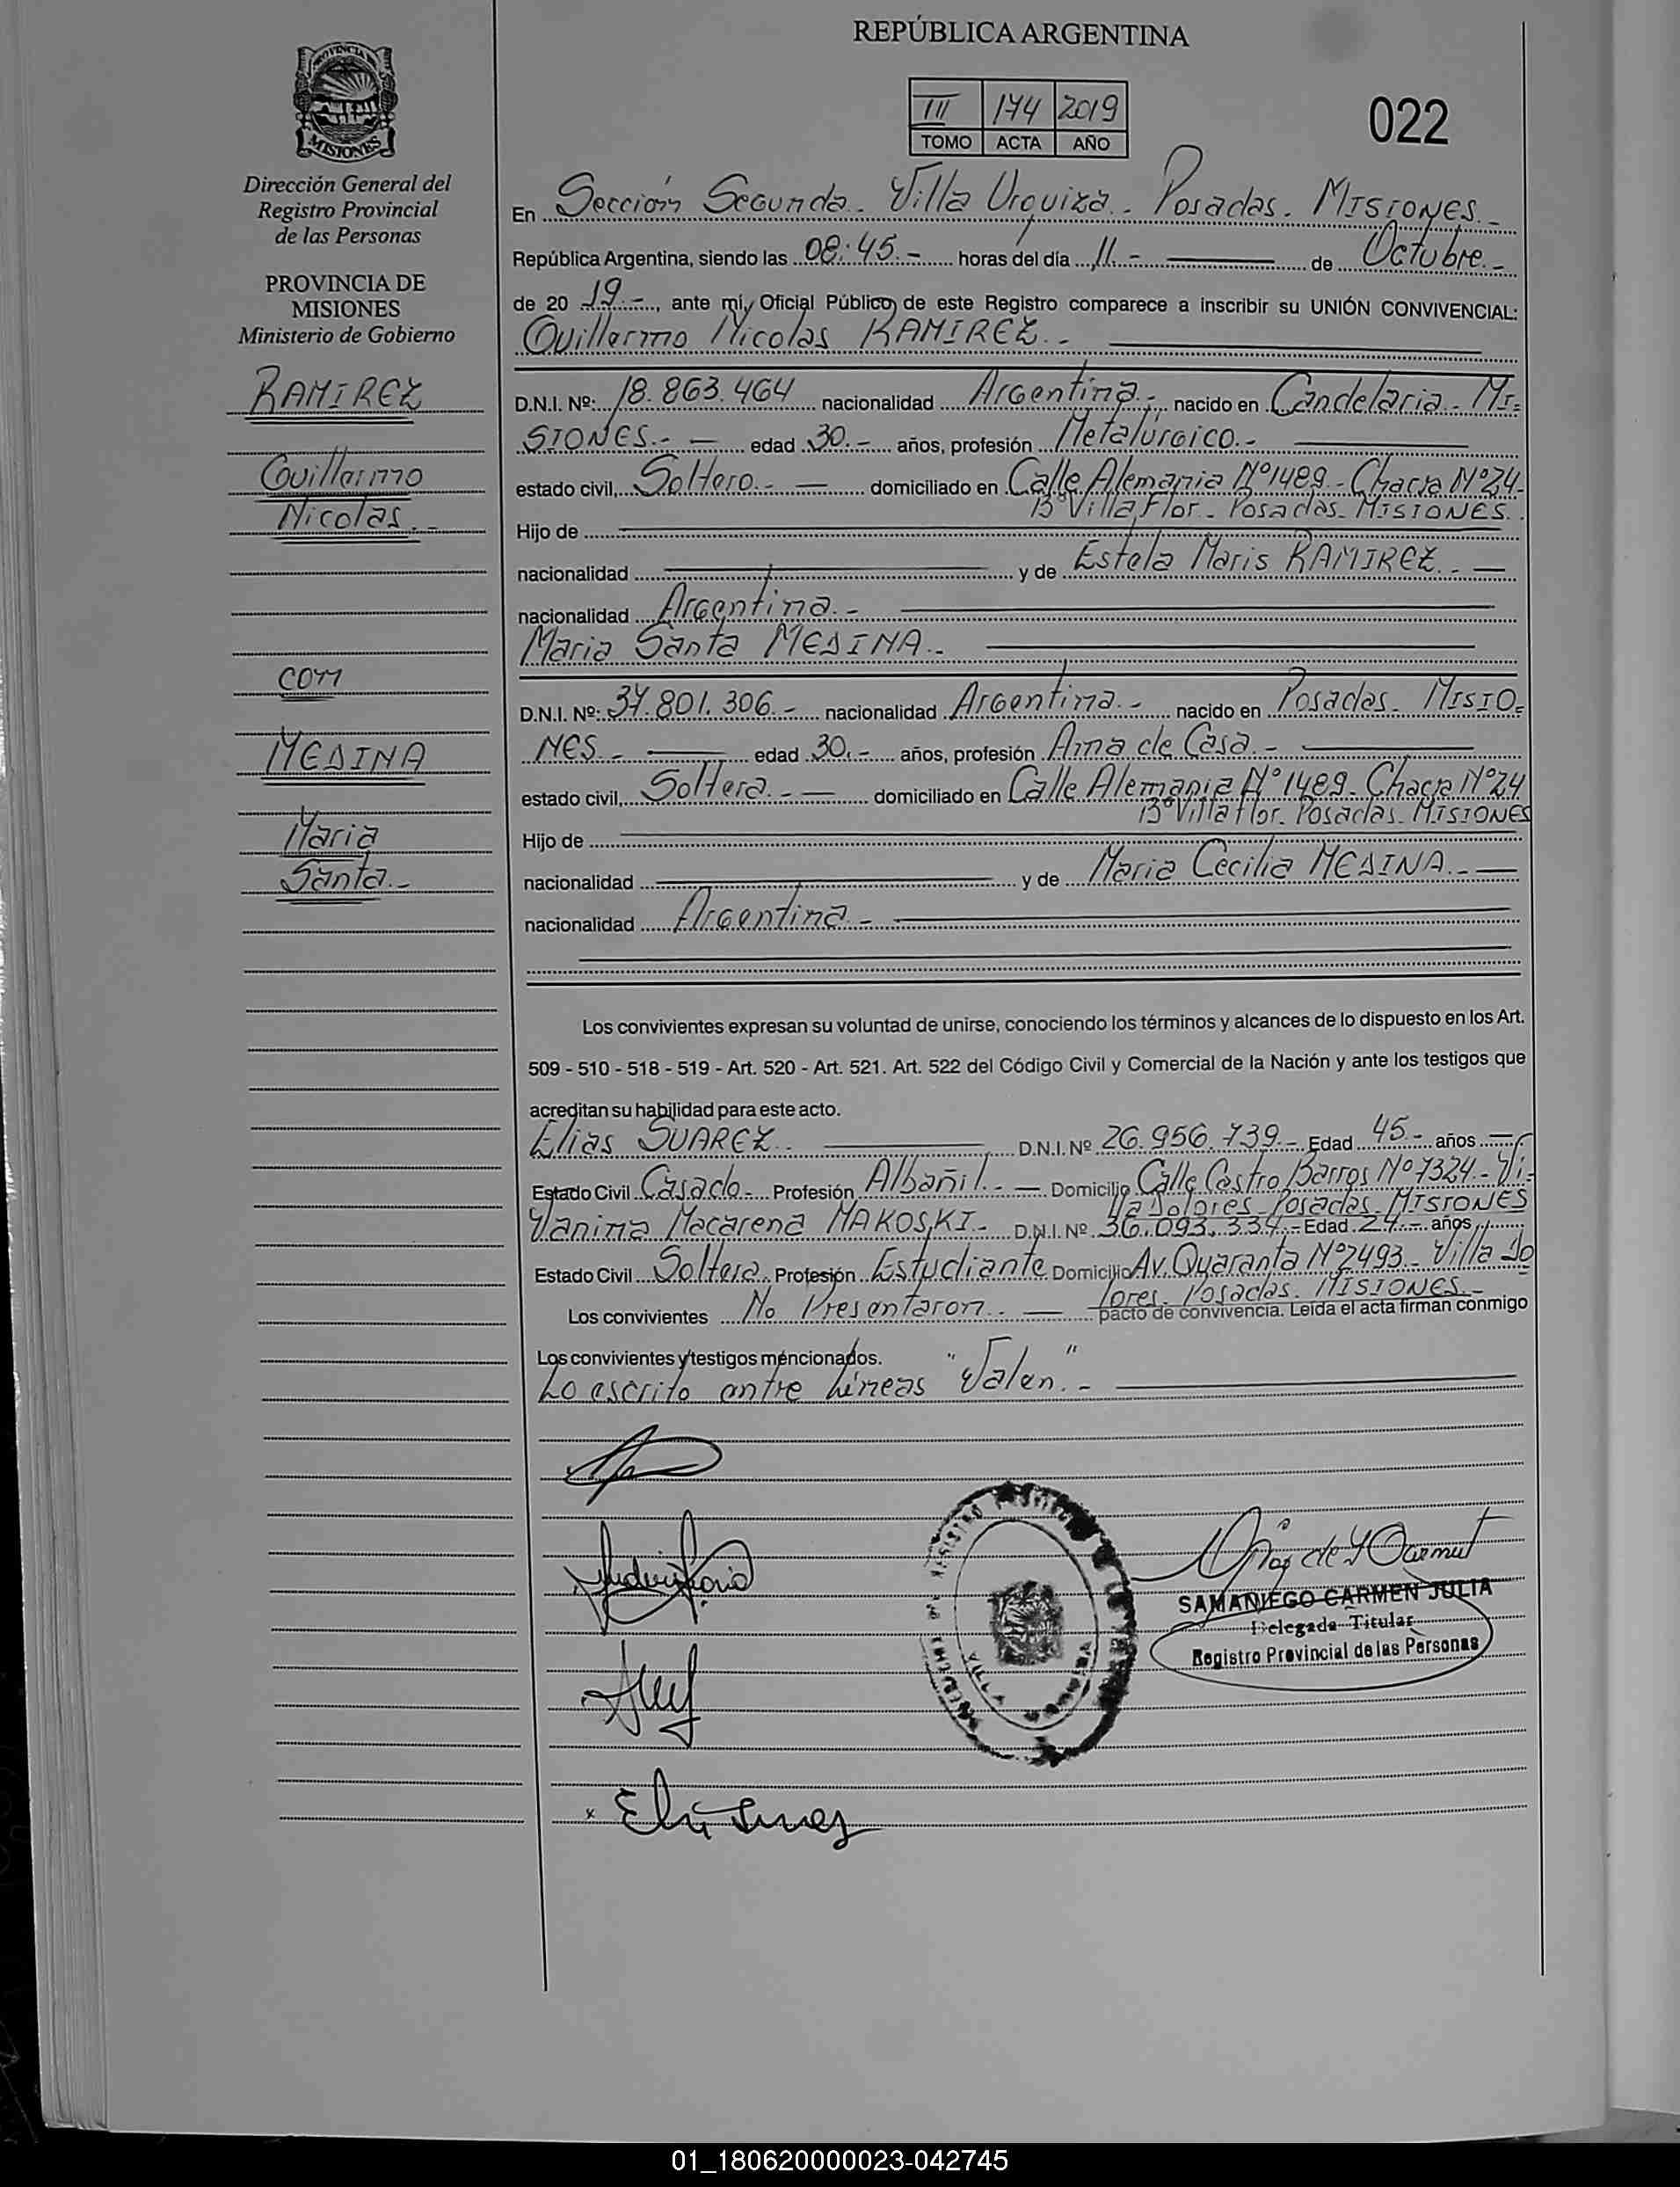 REPÚBLICA ARGENTINA
III 174 2019
TOMO ACTA AÑO
022
PROVINCIA
MISIONES
Dirección General del
Registro Provincial
de las Personas
PROVINCIA DE
MISIONES
Ministerio de Gobierno
RAMIREZ
Guillermo
Nicolas.-
con
MEDINA
Maria
Santa.-
En Sección Segunda. Villa Urquiza. Posadas. MISIONES.-
República Argentina, siendo las 08:45.- horas del día 11.- de Octubre.-
de 20 19.-, ante mí, Oficial Público de este Registro comparece a inscribir su UNIÓN CONVIVENCIAL:
Guillermo Nicolas RAMIREZ.-
D.N.I. Nº: 18.863.464 nacionalidad Argentina.-, nacido en Candelaria. MI=
SIONES.- edad 30.- años, profesión Metalúrgico.-
estado civil, Soltero.- domiciliado en Calle Alemania Nº1489.- Chacra Nº24-
Bº Villa Flor. Posadas. MISIONES.
Hijo de
nacionalidad y de Estela Maris RAMIREZ.-
nacionalidad Argentina.-
Maria Santa MEDINA.-
D.N.I. Nº: 34.801.306.- nacionalidad Argentina.- nacido en Posadas. MISIO=
NES.- edad 30.- años, profesión Ama de Casa.-
estado civil, Soltera.- domiciliado en Calle Alemania Nº1489. Chacra Nº24
Bº Villa Flor. Posadas. MISIONES
Hijo de
nacionalidad y de Maria Cecilia MEDINA.-
nacionalidad Argentina.-
Los convivientes expresan su voluntad de unirse, conociendo los términos y alcances de lo dispuesto en los Art.
509 - 510 - 518 - 519 - Art. 520 - Art. 521. Art. 522 del Código Civil y Comercial de la Nación y ante los testigos que
acreditan su habilidad para este acto.
Elias SUAREZ.- D.N.I. Nº 26.956.739.- Edad 45.- años
Estado Civil Casado.- Profesión Albañil.- Domicilio Calle Castro Barros Nº7324.- Vi=
lla Dolores. Posadas. MISIONES
Yanina Macarena MAKOSKI.- D.N.I. Nº 36.093.334.- Edad 27.- años
Estado Civil Soltera. Profesión Estudiante Domicilio Av. Quaranta Nº2493.- Villa Do
lores. Posadas. MISIONES.-
Los convivientes No Presentaron.- pacto de convivencia. Leída el acta firman conmigo
Los convivientes y testigos mencionados.
Lo escrito entre Líneas "Valen".-
SAMANIEGO CARMEN JULIA
Delegada Titular
Registro Provincial de las Personas
01_180620000023-042745